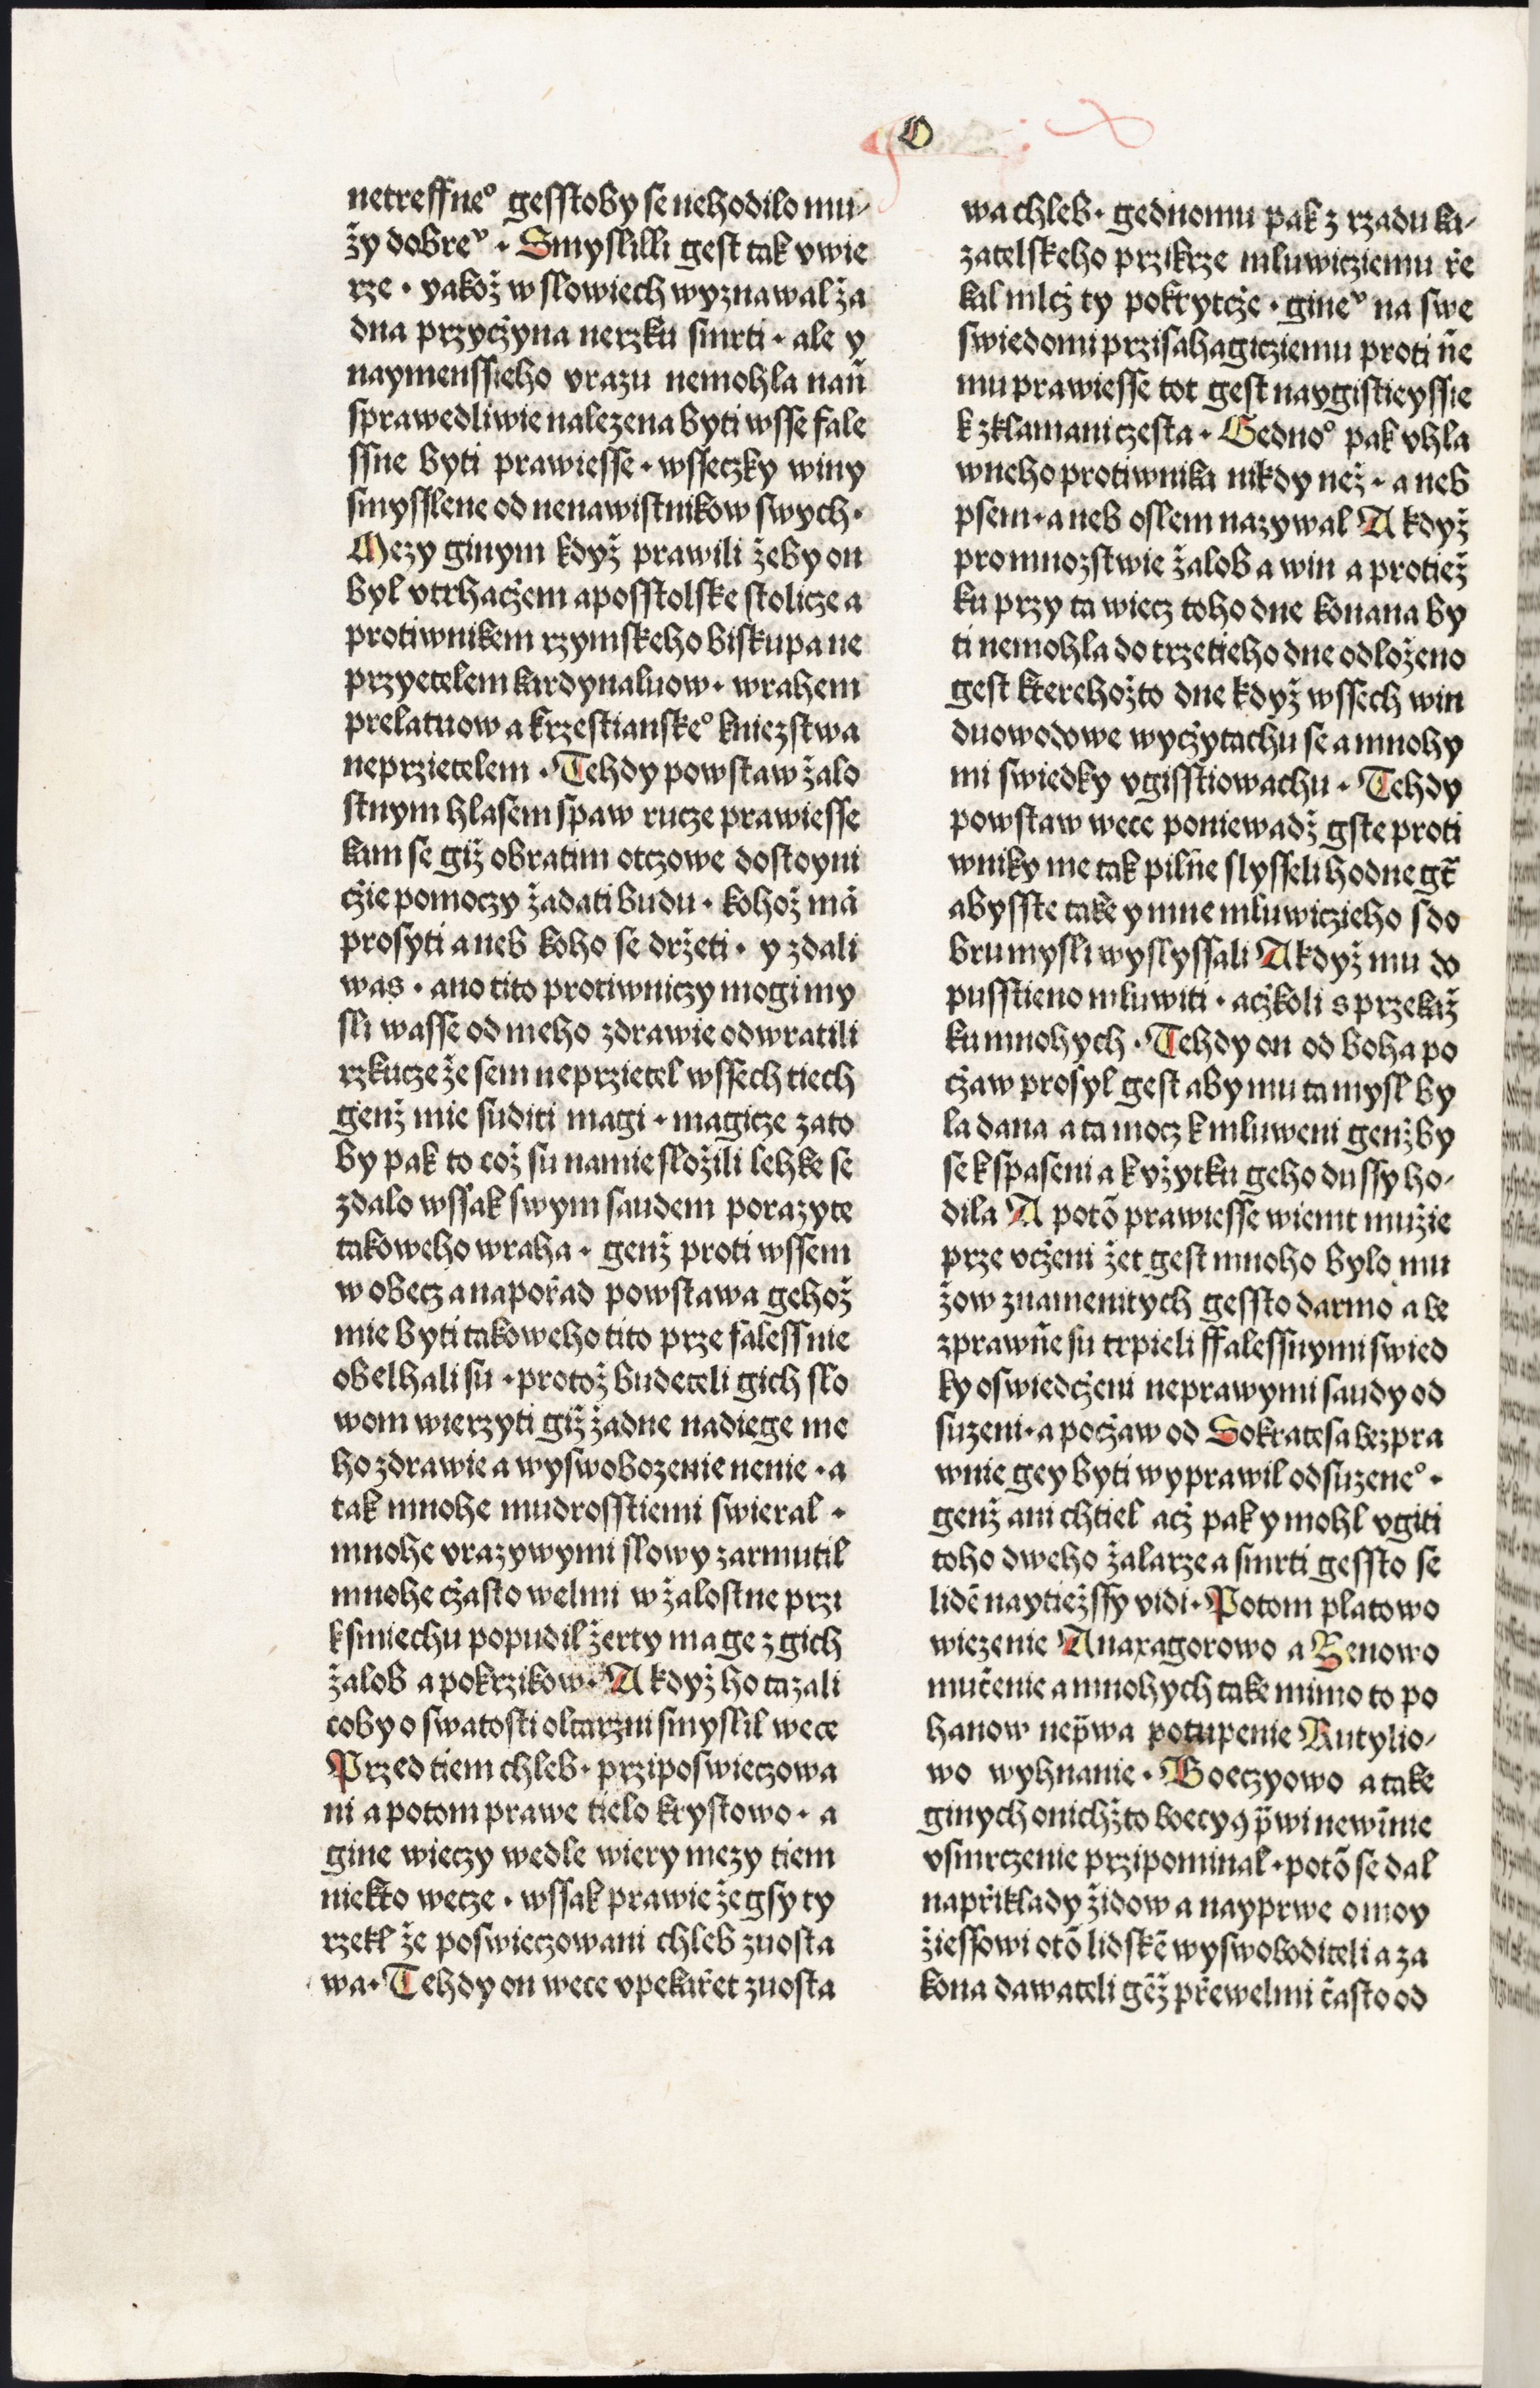 O
netreffneº gesstoby se nehodilo mu⸗
ży dobreᵛ · Smyslilli gest tak v wie
rze · yakož w slowiech wyznawal ża
dna przyczyna nerzku smrti · ale y
naymenssieho vrazu nemohla nan̄
sprawedliwie nalezena byti wsse fale
ssne byti prawiesse · wsseczky winy
smysslene od nenawistnikow swych ·
Mezy ginym když prawili żeby on
byl vtrhaczem aposstolske stolicze a
protiwnikem rzymskeho biskupa ne
przyetelem kardynaluow · wrahem
prelatuow a krzestianskeº kniezstwa
neprzietelem · Tehdy powstaw żalo
stnym hlasem spaw rucze prawiesse
kam se giž obratim otczowe dostoyni
czie pomoczy żadati budu · kohož mā
prosyti a neb koho se držeti · y zdali
was · ano tito protiwniczy mogi my
sli wasse od meho zdrawie odwratili
rzkucze že sem neprzietel wssech tiech
genž mie suditi magi · magicze zato
by pak to což su namie složili lehke se
zdalo wssak swym saudem porazyte
takoweho wraha · genž proti wssem
w obecz a napořad powstawa gehož
mie byti takoweho tito prze falessnie
obelhali su · protož budeteli gich slo
wom wierzyti giž żadne nadiege me
ho zdrawie a wyswobozenie nenie · a
tak mnohe mudrosstiemi swieral ·
mnohe vrazywymi slowy zarmutil
mnohe czasto welmi w żalostne przi
k smiechu popudil żerty mage z gich
żalob a pokrzikow · A když ho tazali
coby o swatosti oltarzni smyslil wece
Przed tiem chleb · przi poswieczowa
ni a potom prawe tielo krystowo · a
gine wieczy wedle wiery mezy tiem
niekto wecze · wssak prawie že gsy ty
rzekl že poswieczowani chleb zuosta
wa · Tehdy on wece v pekařet zuosta
wa chleb · gednomu pak z rzadu ka⸗
zatelskeho przikrze mluwicziemu ře
kal mlcž ty pokrytcže · gineᵛ na swe
swiedomi przisahagicziemu proti n̄e
mu prawiesse tot gest naygistieyssie
k zklamani czesta · Gednoº pak v hla
wneho protiwnika nikdy než · a neb
psem · a neb oslem nazywal A když
pro mnozstwie żalob a win a protiež
ku przy ta wiecz toho dne konana by
ti nemohla do trzetieho dne odloženo
gest kterehožto dne když wssech win
duowodowe wyczytachu se a mnohy
mi swiedky vgisstiowachu · Tehdy
powstaw wece poniewadž gste proti
wniky me tak pilne slysseli hodne gt̄
abysste take y mne mluwiczieho s do
bru mysli wyslyssali A když mu do
pusstieno mluwiti · aczkoli s przekaž
ku mnohych · Tehdy on od boha po
czaw prosyl gest aby mu ta mysl by
la dana a ta mocz k mluweni genž by
se k spaseni a k vžytku geho dussy ho⸗
dila A potō prawiesse wiemt mužie
prze vczeni żet gest mnoho bylo mu
żow znamenitych gessto darmo a be
zprawn̄e su trpieli ffalessnymi swied
ky oswiedczeni neprawymi saudy od
suzeni · a poczaw od Sokratesa bezpra
wnie gey byti wyprawil odsuzeneº ·
genž ani chtiel acž pak y mohl vgiti
toho dweho żalarze a smrti gessto se
lidē naytiežssy vidi · Potom platowo
wiezenie Anaxagorowo a Zenowo
mučenie a mnohych take mimo to po
hanow nep̄wa potupenie Rutylio⸗
wo wyhnanie · Boeczyowo a take
ginych o nichžto boecyꝯ p̄wi newīnie
vsmrczenie przipominal · potō se dal
na přiklady židow a nayprwe o moy
żiessowi otō lidskē wyswoboditeli a za
kona dawateli gēž přewelmi často od